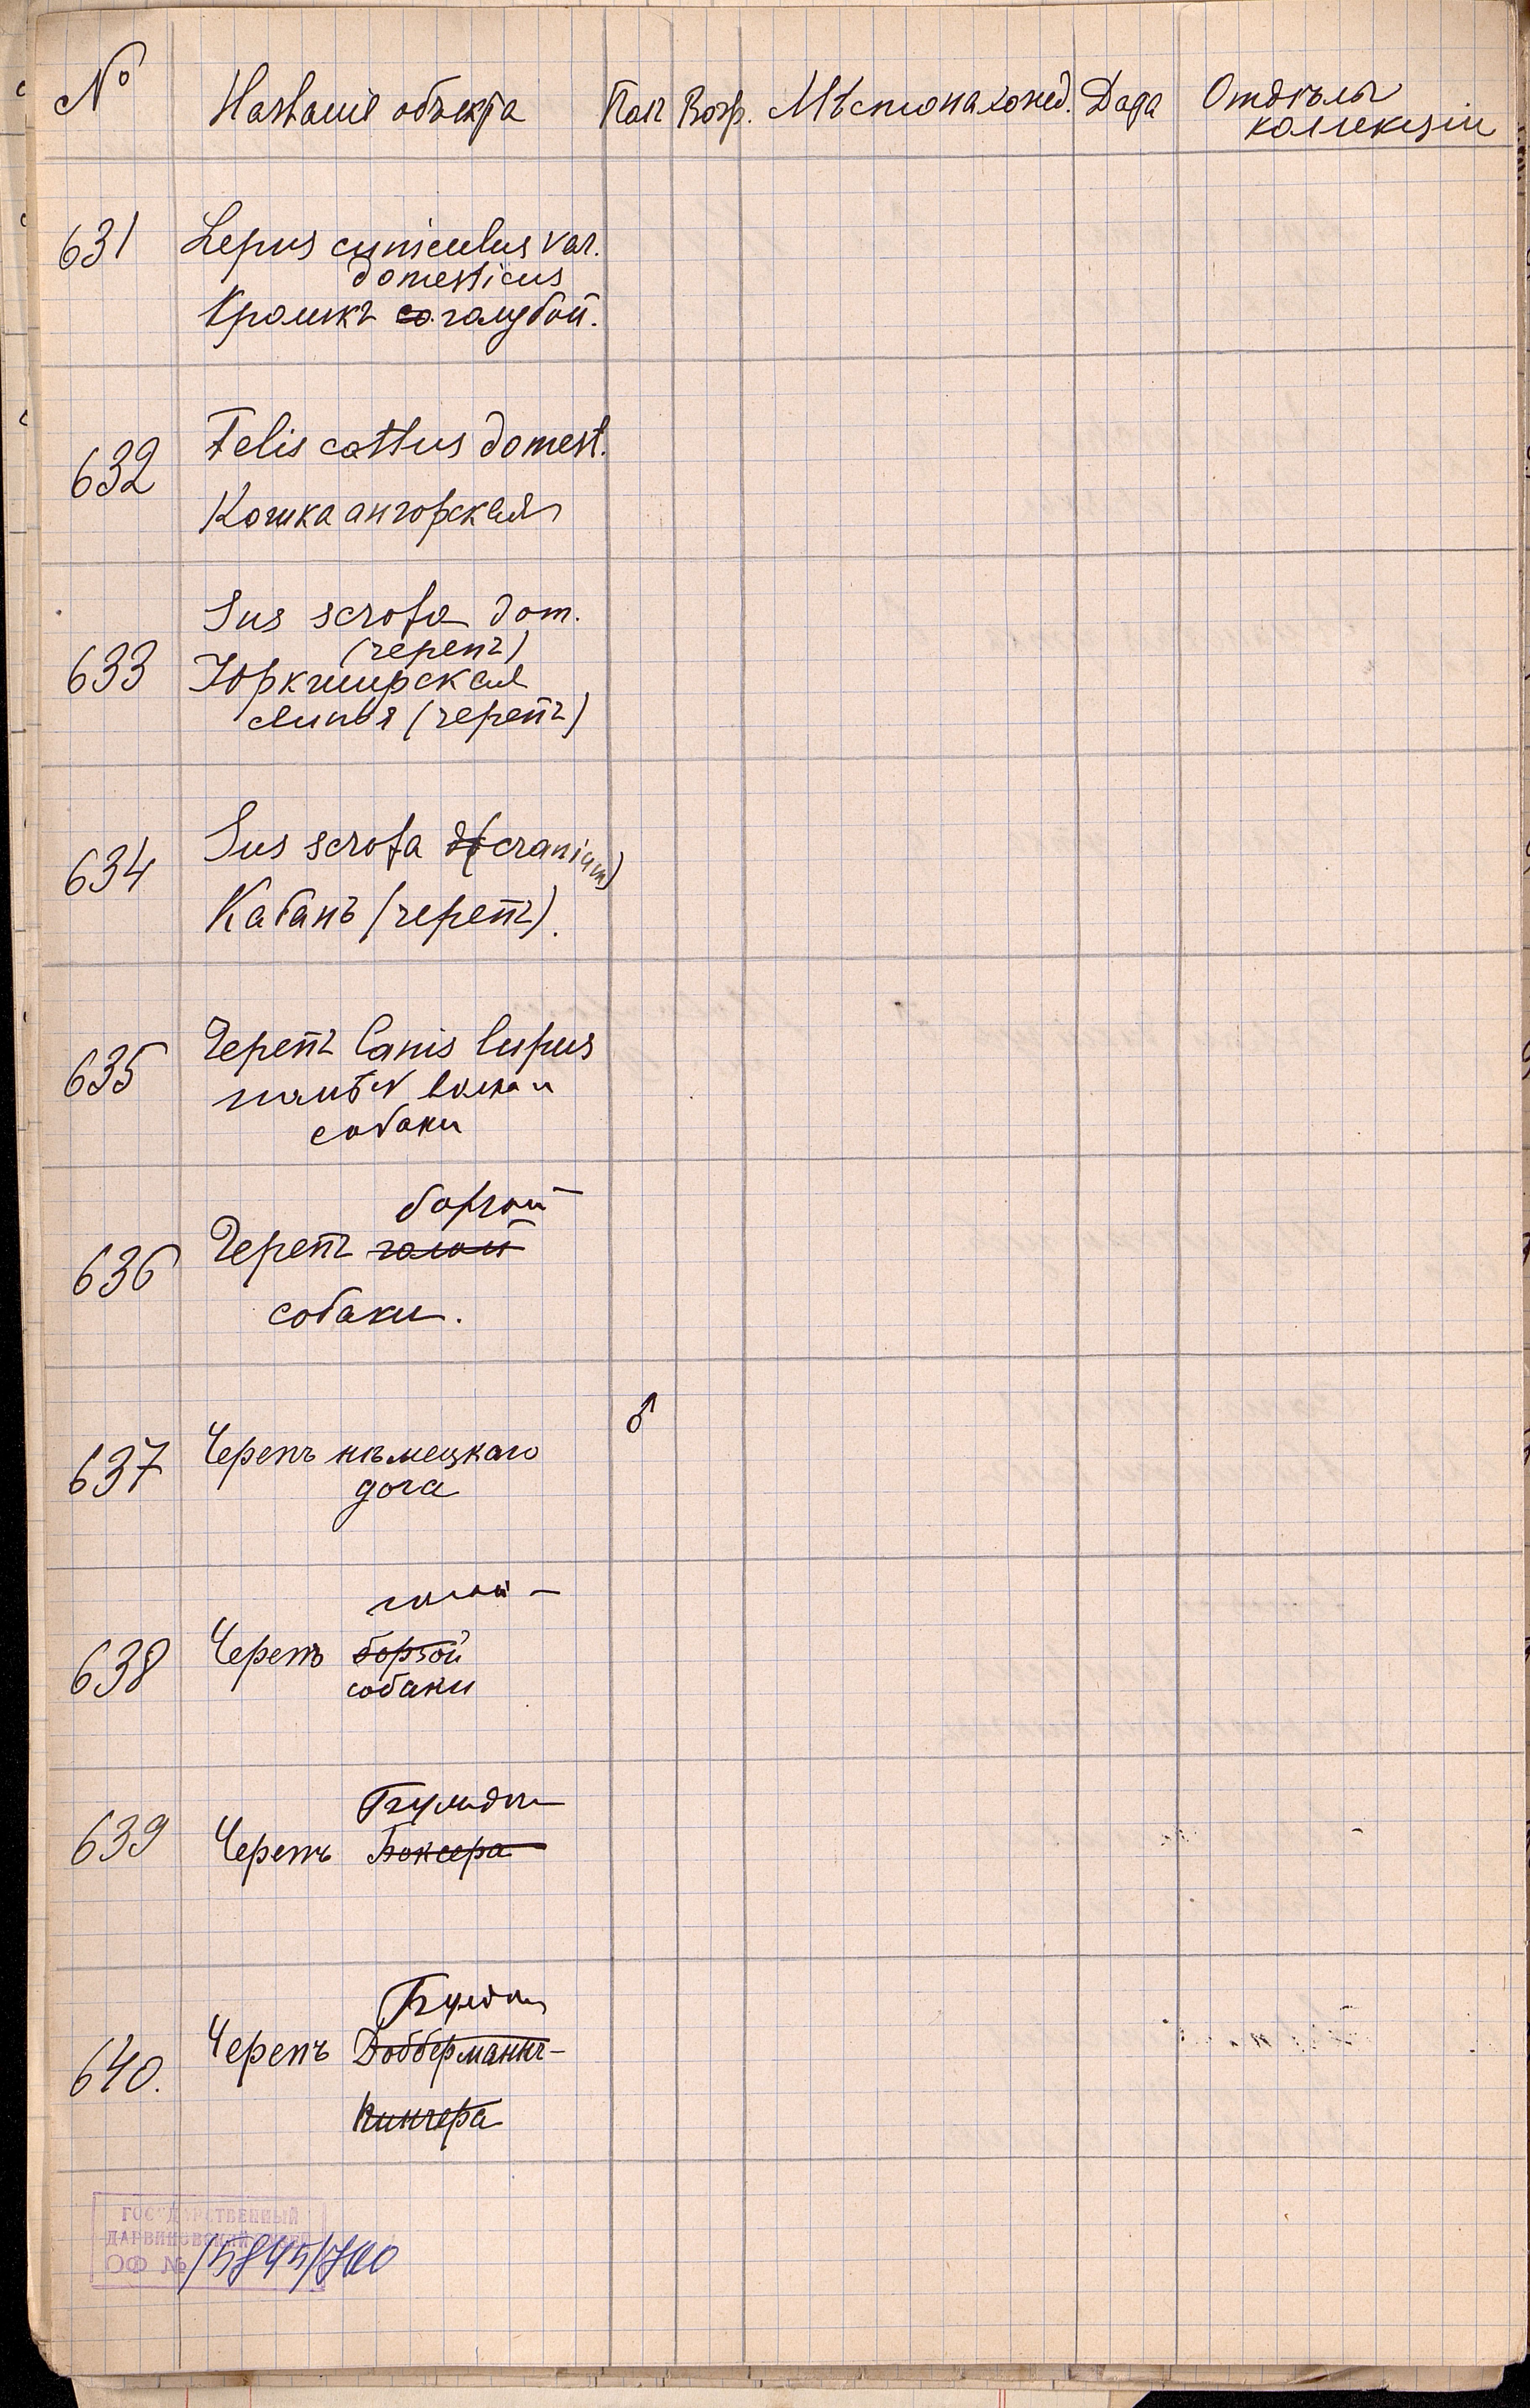 № Названiе объекта Полъ Возр. Мѣстонахожд. Дата Отдѣлы
коллекцiи
631 Lepus cuniculus var.
domesticus
Кроликъ со голубой.
632 Felis cattus domest.
Кошка ангорская
633 Sus scrofa dom.
(черепъ)
Юркширская
свинья (черепъ)
634 Sus scrofa d (cranium)
Кабанъ (черепъ).
635 Черепъ Canis lupus
волка и
собаки
борзой
636 Черепъ голой
собаки.
637 Черепъ нѣмецкаго ♂
дога
голой
638 Черепъ борзой
собаки
Бульдога
639 Черепъ Боксера
Бульдога
640. Черепъ Добберманнъ-
Пинчера
ГОСУДАРСТВЕННЫЙ
ДАРВИНОВСКИЙ МУЗЕЙ
ОФ №